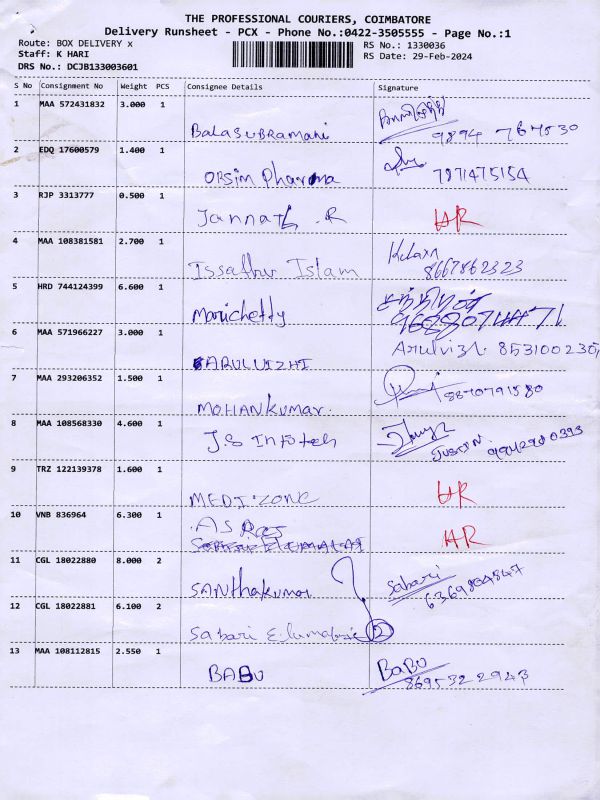 THE PROFESSIONAL COURIERS, COIMBATORE
Delivery Runsheet - PCX - Phone No.:0422-3505555 - Page No.:1
Route: BOX DELIVERY x RS No.: 1330036
Staff: K HARI RS Date: 29-Feb-2024
DRS No.: DCJB133003601
S No Consignment No Weight PCS Consignee Details Signature
1 MAA 572431832 3.000 1
Balasubramani 9894
2 EDQ 17600579 1.400 1
Orsim Pharma 7971475154
3 RJP 3313777 0.500 1
Jannath .R
4 MAA 108381581 2.700 1
Islam 8667862323
5 HRD 744124399 6.600 1
Marichetty
6 MAA 571966227 3.000 1
ARULVIZHI
7 MAA 293206352 1.500 1
MOHANKUMAR. 8870791580
8 MAA 108568330 4.600 1
J.S Infotech
9 TRZ 122139378 1.600 1
MEDI ZONE
10 VNB 836964 6.300 1
AS
11 CGL 18022880 8.000 2
SANthakumar Sabari
12 CGL 18022881 6.100 2
Sabari 2
13 MAA 108112815 2.550 1
BABU BABU
8695322943